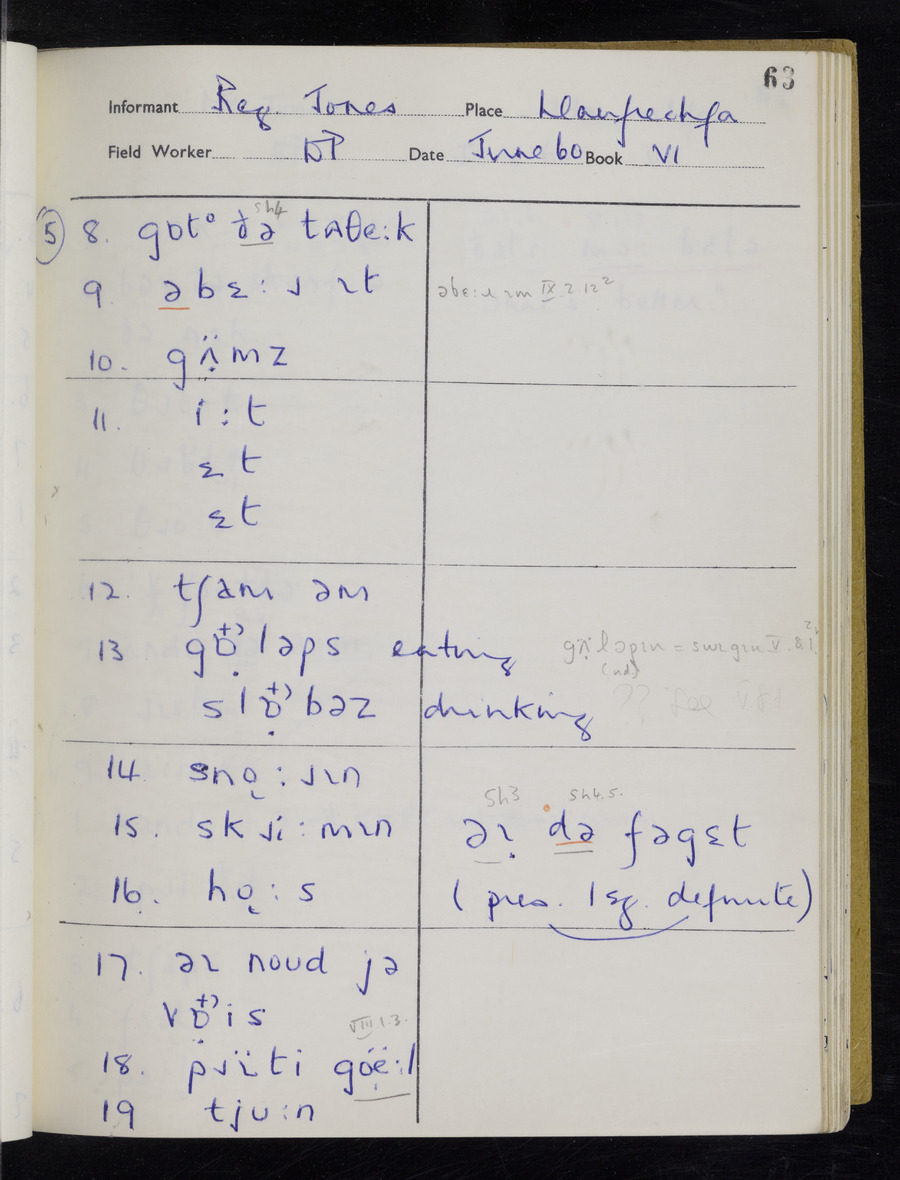 63
Informant Reg. Jones Place Llanfrechfa
Field Worker DP Date June 60 Book VI
sh4
5 8. gɒtᵒ ðə tʌθe:k
9 əbɛ:ɹ ɪt
əbɛ:ɹ ɪm IX 2 12²
10. gʌ̣̈mz
11. i:t
ɛt
ɛt
12. tʃam əm
13 gɒ̣⁺⁾ləps eating
gʌ̣̈ləpɪn = swɪgɪn V.8.1
(nd)
slɒ̣⁺⁾bəz drinking
?? See V81
14. snɔ̜:ɹɪn
15. skɹi:mɪn
sh3 sh4.5.
əɪ̣ də fəgɛt
16. hɔ̜:s
(pres. 1sg. definite)
17. əɪ noud jə
vɒ̣⁺⁾is
VIII 1.3.
18. pɹɪ̈ti gœ̈:l
19 tju:n